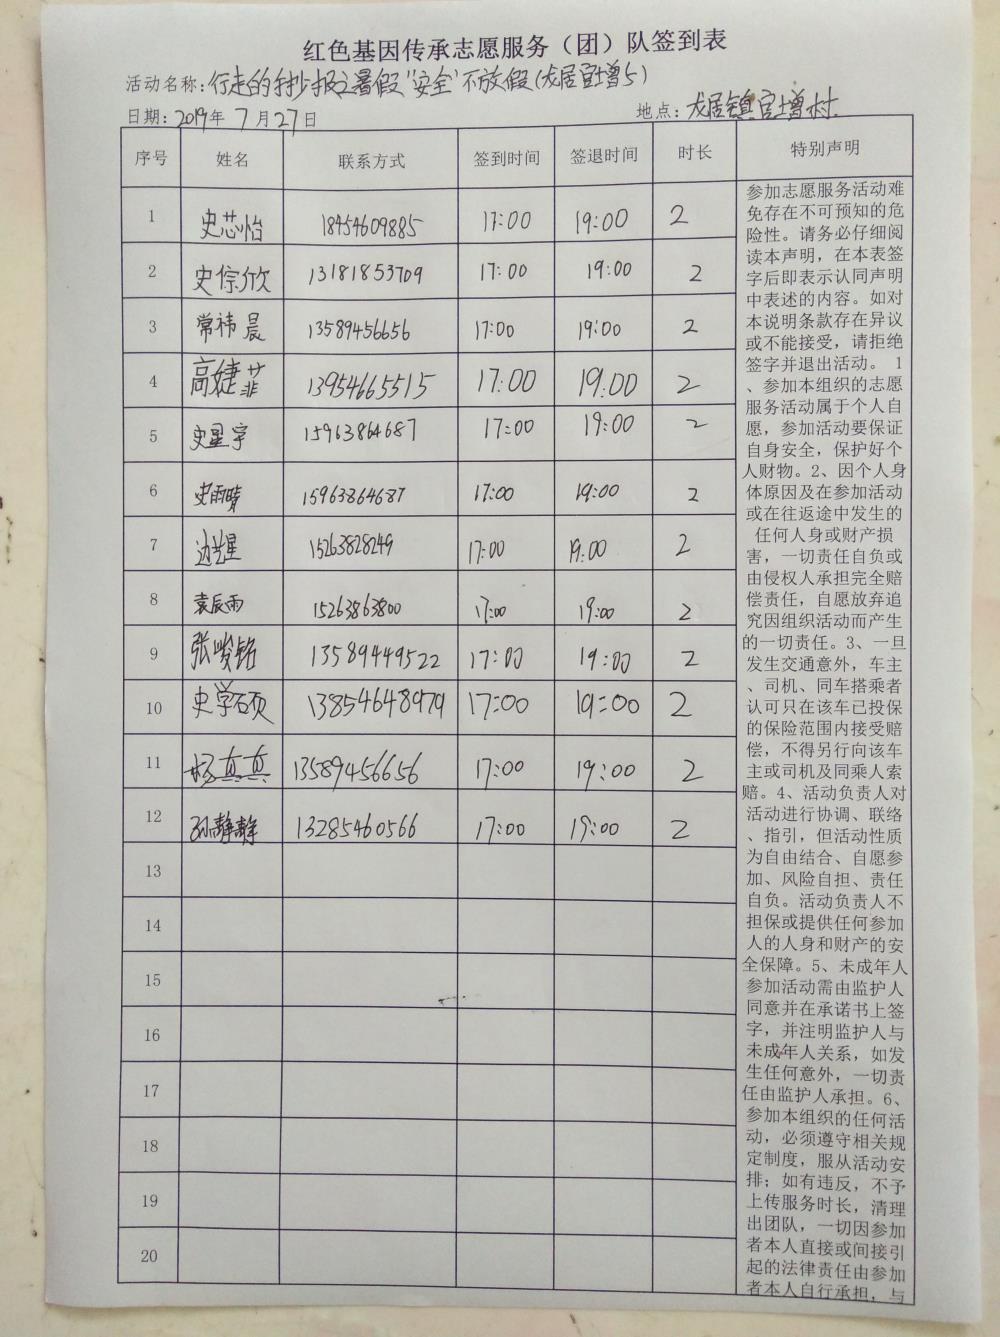 红色基因传承志愿服务（团）队签到表
活动名称：行走的手抄报之暑假"安全"不放假(龙居官增5)
日期：2019年 7月27日 地点：龙居镇官增村
序号 姓名 联系方式 签到时间 签退时间 时长 特别声明
1 史芯怡 18454609885 17:00 19:00 2
2 史倧欣 13181853709 17:00 19:00 2
3 常祎晨 13589456656 17:00 19:00 2
4 高婕菲 13954665515 17:00 19:00 2
5 史星宇 15963864687 17:00 19:00 2
6 史雨晴 15963864687 17:00 19:00 2
7 边星 15263828249 17:00 19:00 2
8 袁辰雨 15263863800 17:00 19:00 2
9 张峻铭 13589449522 17:00 19:00 2
10 史学硕 13854648979 17:00 19:00 2
11 杨真真 13589456656 17:00 19:00 2
12 孙静静 13285460566 17:00 19:00 2
13
14
15
16
17
18
19
20
参加志愿服务活动难
免存在不可预知的危
险性。请务必仔细阅
读本声明，在本表签
字后即表示认同声明
中表述的内容。如对
本说明条款存在异议
或不能接受，请拒绝
签字并退出活动。 1
、参加本组织的志愿
服务活动属于个人自
愿，参加活动要保证
自身安全，保护好个
人财物。2、因个人身
体原因及在参加活动
或在往返途中发生的
任何人身或财产损
害，一切责任自负或
由侵权人承担完全赔
偿责任，自愿放弃追
究因组织活动而产生
的一切责任。3、一旦
发生交通意外，车主
、司机、同车搭乘者
认可只在该车已投保
的保险范围内接受赔
偿，不得另行向该车
主或司机及同乘人索
赔。4、活动负责人对
活动进行协调、联络
、指引，但活动性质
为自由结合、自愿参
加、风险自担、责任
自负。活动负责人不
担保或提供任何参加
人的人身和财产的安
全保障。5、未成年人
参加活动需由监护人
同意并在承诺书上签
字，并注明监护人与
未成年人关系，如发
生任何意外，一切责
任由监护人承担。6、
参加本组织的任何活
动，必须遵守相关规
定制度，服从活动安
排；如有违反，不予
上传服务时长，清理
出团队，一切因参加
者本人直接或间接引
起的法律责任由参加
者本人自行承担，与